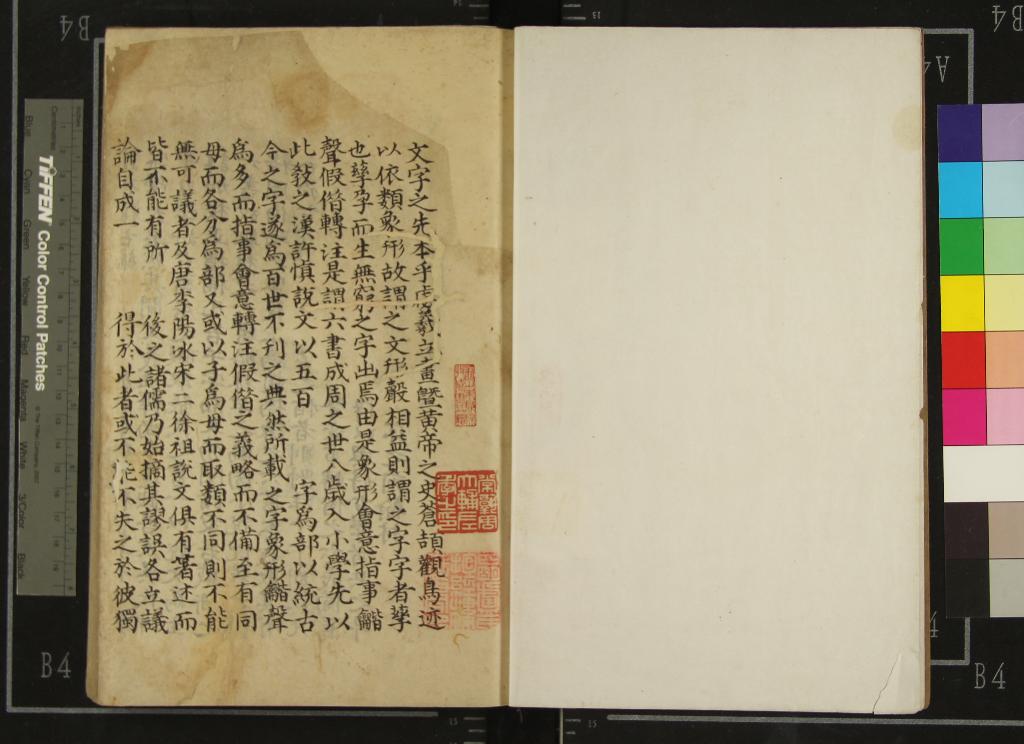 文字之先本乎虙羲立畫曁黄帝之史蒼頡觀鳥迹
以依類象形故謂之文形聲相益則謂之字字者孳
也孳孕而生無窮之字出焉由是象形會意指事
聲假借轉注是謂六書成周之世八歲入小學先以
此敎之漢許愼說文以五百 字爲部以統古
今之字遂爲百世不刋之典然所載之字象形 聲
爲多而指事會意轉注假借之義略而不備至有同
母而各分爲部又或以子爲母而取類不同則不能
無可議者及唐李陽冰宋二徐祖說文俱有著述而
皆不能有所 後之諸儒乃始摘其謬誤各立議
論自成一 得於此者或不能不失之於彼獨
TIFFEN Color Control Patches
Blue
Cyan
Green
Yellow
Red
Magenta
White
3/Color
Black
Inches
Centimetres
B4
B4
A4
B4
B4